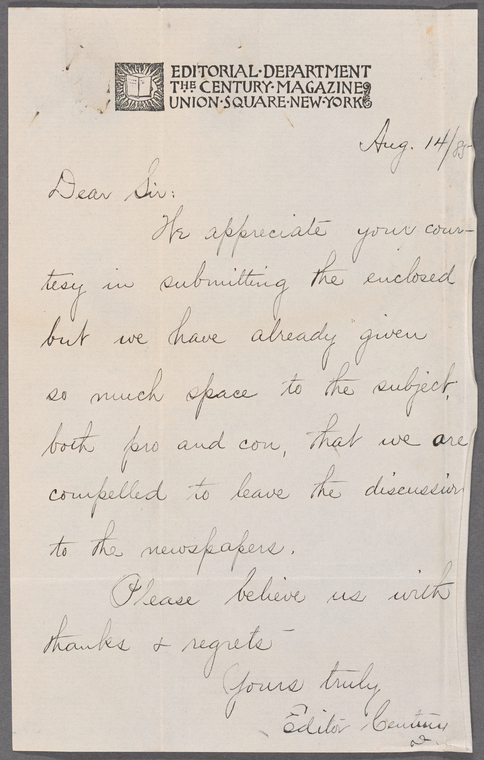 EDITORIAL·DEPARTMENT
THE CENTURY·MAGAZINE
UNION·SQUARE·NEW·YORK
Aug. 14/85
Dear Sir:
We appreciate your cour-
tesy in submitting the enclosed
but we have already given
so much space to the subject,
both pro and con, that we are
compelled to leave the discussion
to the newspapers.
Please believe us with
thanks & regrets
Yours truly
Editor Century